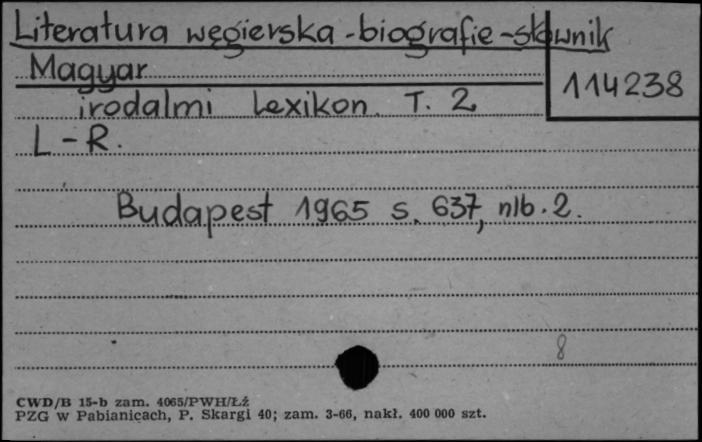 Literatura węgierska - biografie - słownik
Magyar
114238
irodalmi Lexikon. T. 2
L - R.
Budapest 1965 s. 637, nlb. 2.
8
CWD/B 15-b zam. 4065/PWH/Łź
PZG w Pabianicach, P. Skargi 40; zam. 3-66, nakł. 400 000 szt.